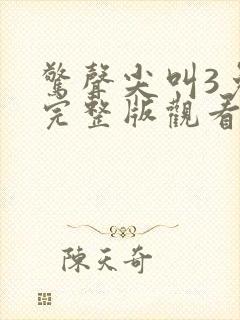 驚聲尖叫3免
完整版觀看
陳天奇